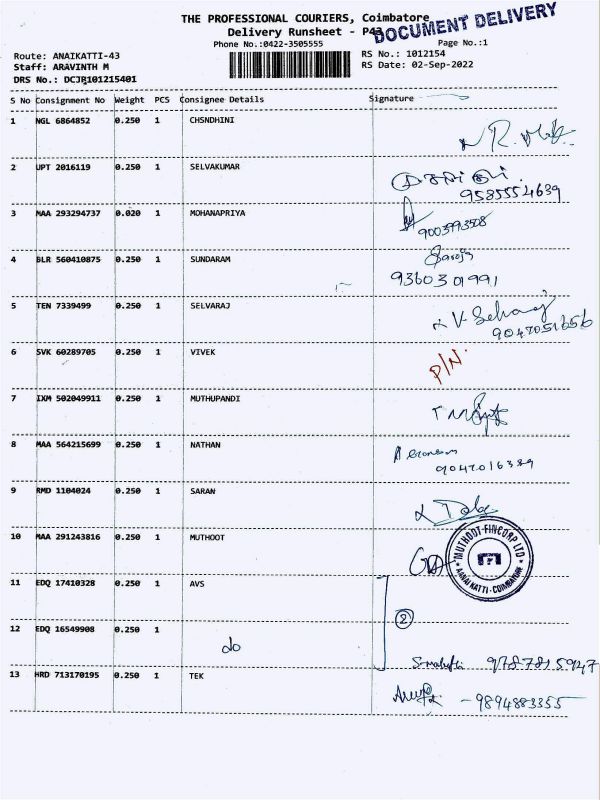 THE PROFESSIONAL COURIERS, Coimbatore
DOCUMENT DELIVERY
Delivery Runsheet - P43
Phone No.:0422-3505555
Page No.:1
Route: ANAIKATTI-43
RS No.: 1012154
Staff: ARAVINTH M
RS Date: 02-Sep-2022
DRS No.: DCJP101215401
S No Consignment No Weight PCS Consignee Details Signature
1 NGL 6864852 0.250 1 CHSNDHINI
2 UPT 2016119 0.250 1 SELVAKUMAR
9585554639
3 MAA 293294737 0.020 1 MOHANAPRIYA
9003993508
4 BLR 560410875 0.250 1 SUNDARAM Saroja
9360301991
5 TEN 7339499 0.250 1 SELVARAJ
9047051656
6 SVK 60289705 0.250 1 VIVEK P/N.
7 IXM 502049911 0.250 1 MUTHUPANDI
8 MAA 564215699 0.250 1 NATHAN
9047016389
9 RMD 1104024 0.250 1 SARAN
10 MAA 291243816 0.250 1 MUTHOOT
MUTHOOT FINCORP LTD
ANAIKATTI - COIMBATORE
11 EDQ 17410328 0.250 1 AVS
2
12 EDQ 16549908 0.250 1 do
9787815947
13 HRD 713170195 0.250 1 TEK
- 9894883355